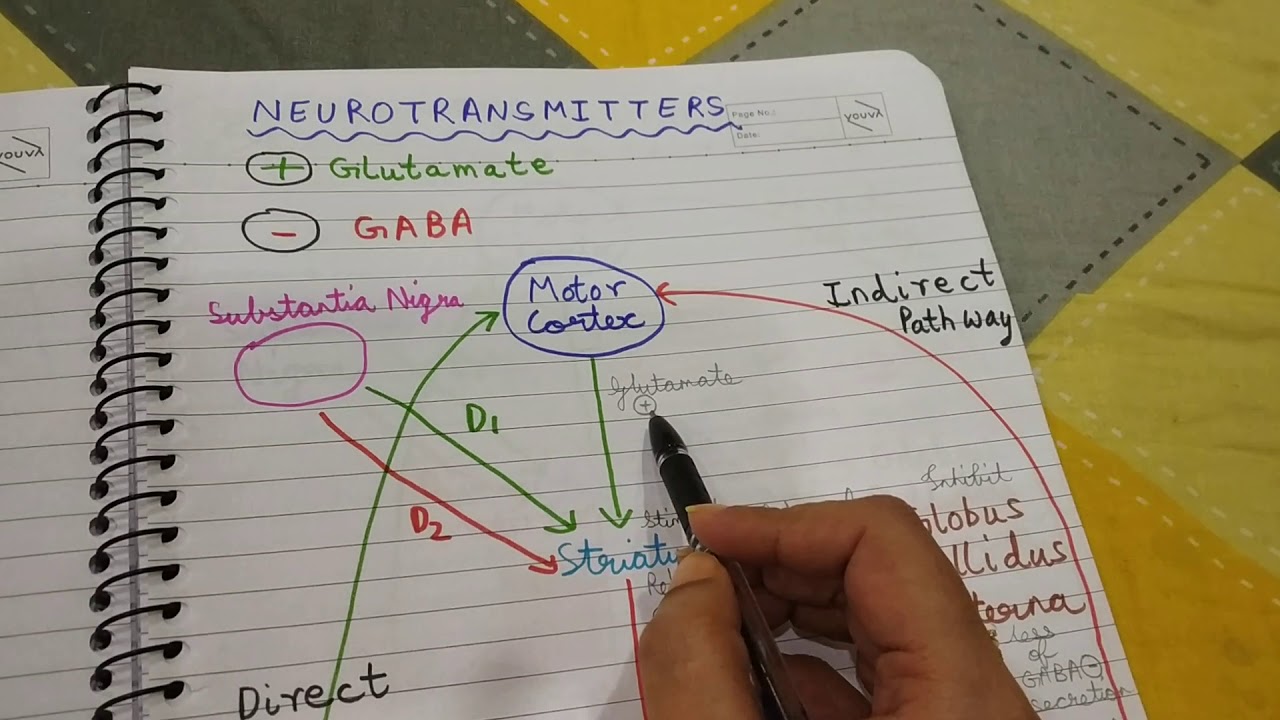 NEUROTRANSMITTERS
Page No.:
Date:
YOUVA
YOUVA
+ Glutamate
- GABA
Substantia Nigra
Motor
Cortex
Indirect
Pathway
Glutamate
+
D1
D2
Inhibit
Globus
less
of
GABA -
secretion
Direct